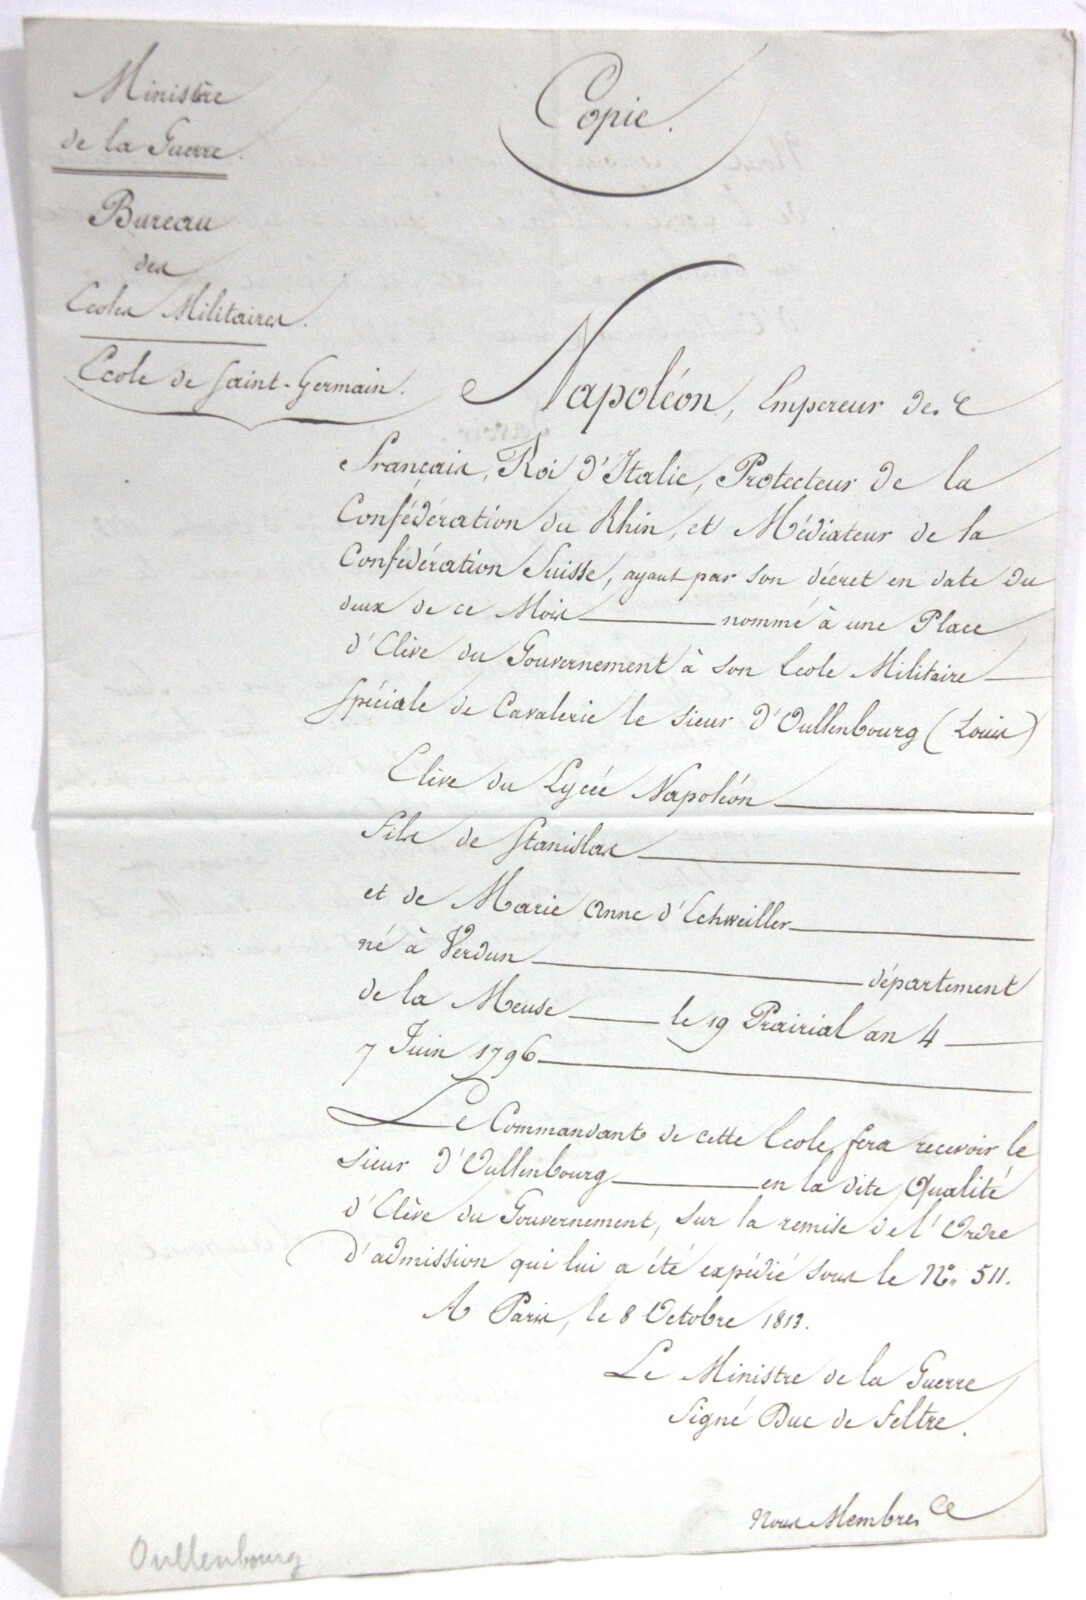 Ministre
de la Guerre.
Bureau
des
Ecoles Militaires.
Ecole de Saint-Germain.
Copie.
Napoléon, Empereur des
Français, Roi d'Italie, Protecteur de la
Confédération du Rhin, et Médiateur de la
Confédération Suisse, ayant par son décret en date du
deux de ce Mois nommé à une Place
d'Elève du Gouvernement à son Ecole Militaire
Spéciale de Cavalerie le Sieur d'Oullenbourg (Louis)
Elève du Lycée Napoléon
fils de Stanislas
et de Marie Anne d'Echweiller
né à Verdun département
de la Meuse le 19 Prairial an 4
7 Juin 1796
Le Commandant de cette Ecole fera recevoir le
Sieur d'Oullenbourg en la dite Qualité
d'Elève du Gouvernement, sur la remise de l'Ordre
d'admission qui lui a été expédié sous le N.º 511.
A Paris, le 8 Octobre 1813.
Le Ministre de la Guerre
Signé Duc de Feltre.
Nous Membres
Oullenbourg